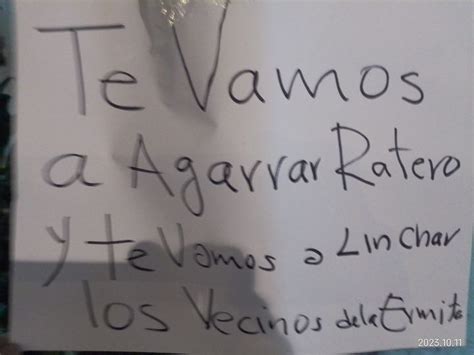 Te Vamos
a Agarrar Ratero
y te Vamos a Linchar
los Vecinos dela Ermita
2023.10.11